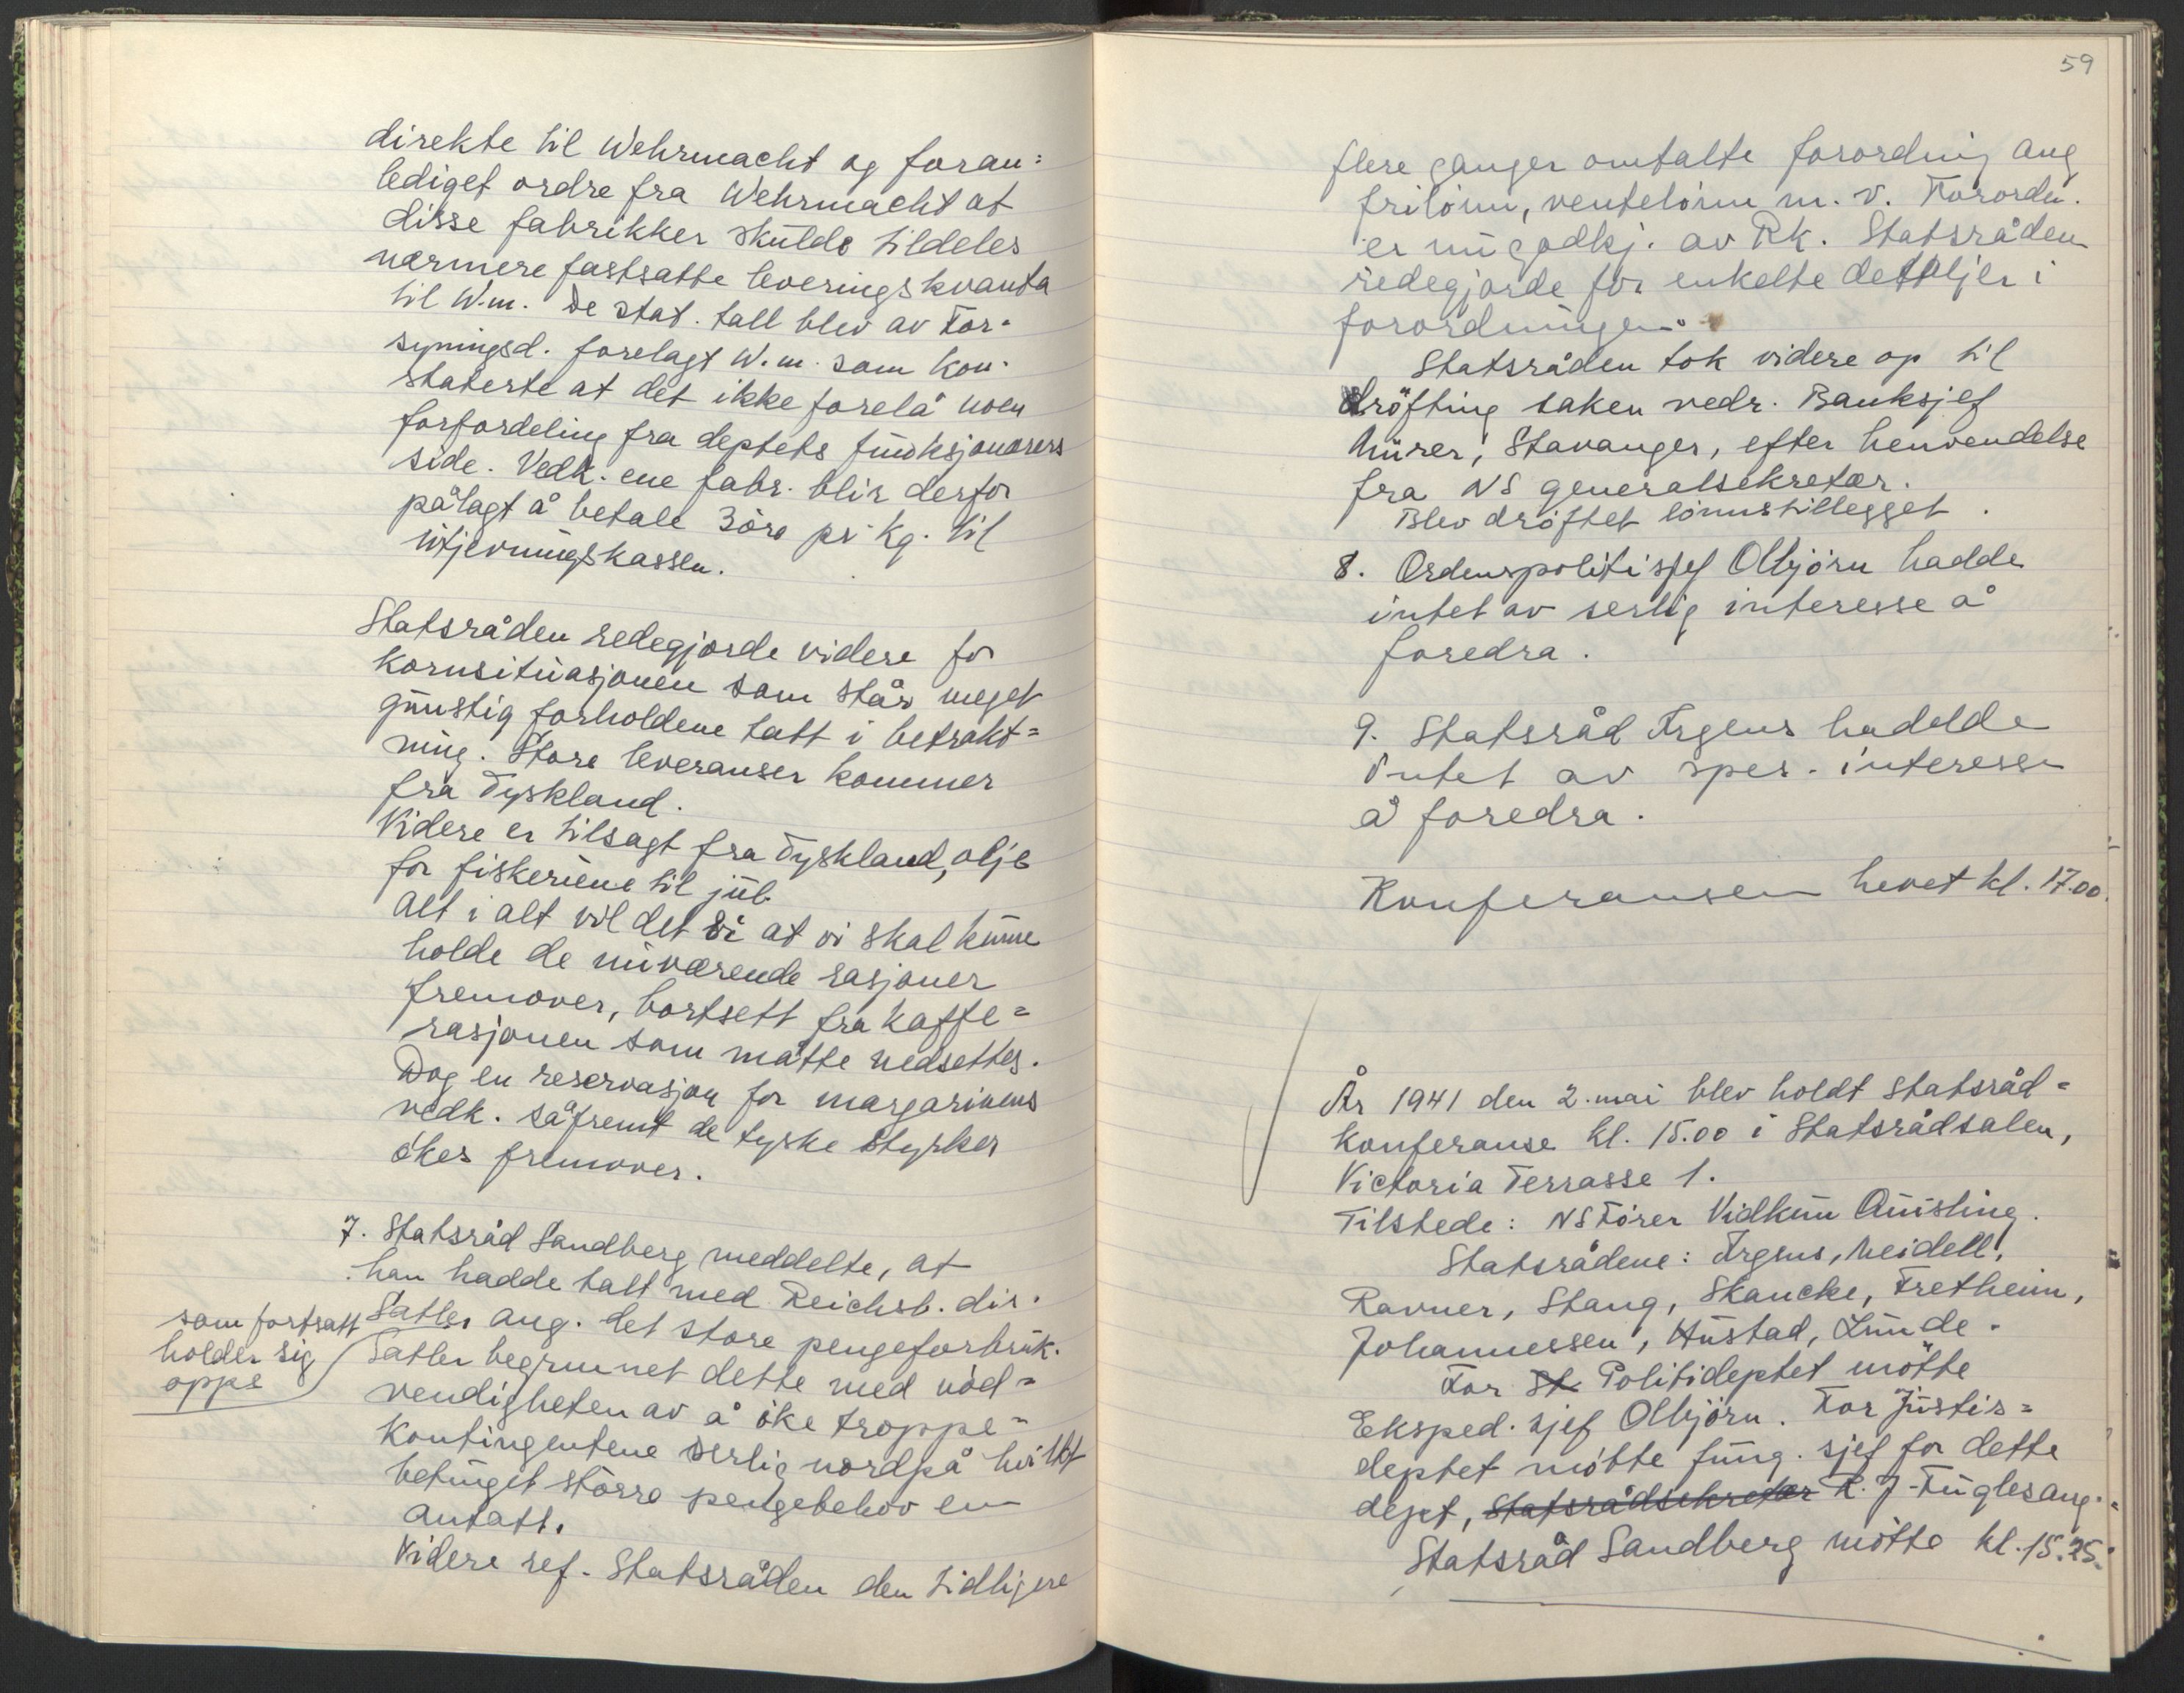 direkte til Wehrmacht og foran=
lediget ordre fra Wehrmacht at
disse fabrikker skulde tildeles
nærmere fastsatte leveringskvanta
til W.m. De stat. tall blev av For-
syningsd. forelagt W.m. som kon-
staterte at det ikke forelå noen
forfordeling fra deptets funksjonærers
side. Vedk. ene fabr. blir derfor
pålagt å betale 3 öre pr kg. til
utjevningskassen.
Statsråden redegjorde videre for
kornsituasjonen som står meget
gunstig forholdene tatt i betrakt=
ning. Store leveranser kommer
fra Tyskland.
Videre er tilsagt fra Tyskland, olje
for fiskeriene til juli.
Alt i alt vil det si at vi skal kunne
holde de nuværende rasjoner
fremover, bortsett fra kaffe=
rasjonen som måtte nedsettes.
Dog en reservasjon for margarinens
vedk. såfremt de tyske styrker
ökes fremover.
7. Statsråd Sandberg meddelte, at
han hadde talt med Reichsb. dir.
Satler ang. det store pengeforbruk.
som fortsatt
holder sig
oppe
Satler begrunnet dette med nöd=
vendigheten av å öke troppe=
kontingentene serlig nordpå hvilket
betinget större pengebehov enn
antatt.
Videre ref. Statsråden den tidligere
59
flere ganger omtalte forordning ang
frilönn, ventelönn m. v. Forordn.
er nu godkj. av Rk. Statsråden
redegjorde for enkelte detaljer i
forordningen.
Statsråden tok videre op til
dröfting saken vedr. Banksjef
Mürer, Stavanger, efter henvendelse
fra NS generalsekretær.
Blev dröftet lönnstillegget.
8. Ordenspolitisjef Olbjörn hadde
intet av serlig interesse å
foredra.
9. Statsråd Irgens hadde
intet av spes. interesse
å foredra.
Konferansen hevet kl. 17.00.
År 1941 den 2. mai blev holdt statsråd=
konferanse kl. 15.00 i Statsrådsalen,
Victoria Terrasse 1.
Tilstede: NS Förer Vidkun Quisling.
Statsrådene: Irgens, Meidell,
Ravner, Stang, Skancke, Fretheim,
Johannessen, Hustad, Lunde.
For St Politideptet mötte
Eksped. sjef Olbjörn. For Justis=
deptet mötte fung. sjef for dette
dept, Statsrådsekretær R. J. Fuglesang.
Statsråd Sandberg mötte kl. 15.25.